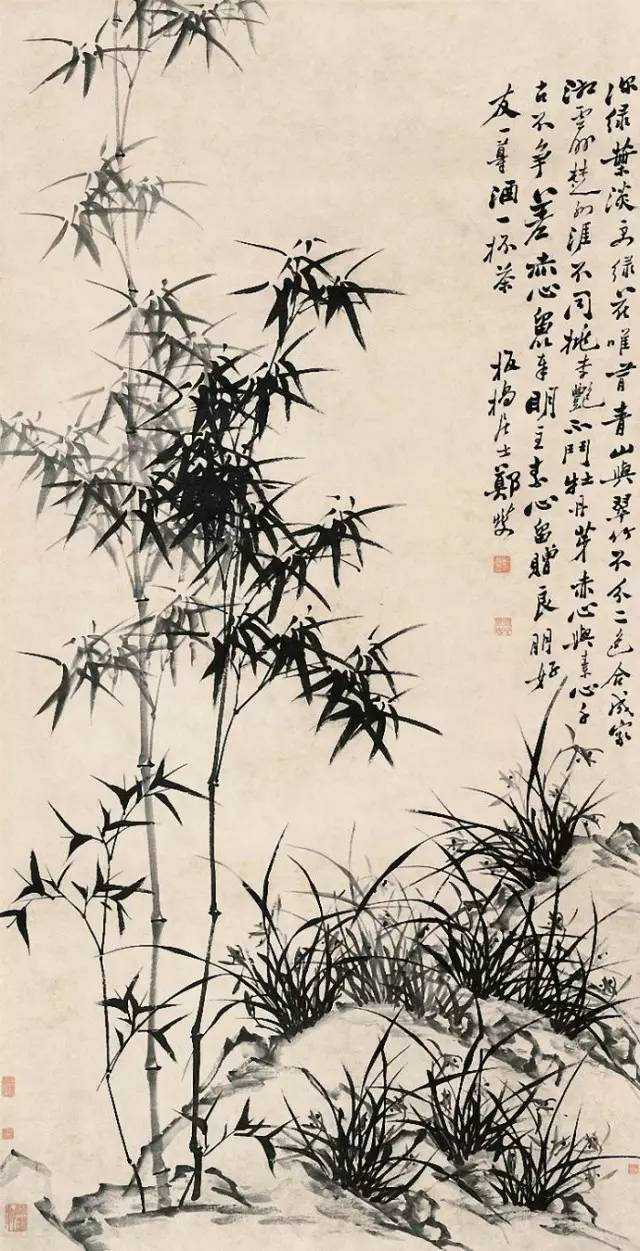 綠葉淡綠花唯青山與翠竹不分二色合成家
湘雲外楚天涯不同桃李艷不鬥牡丹芽赤心與素心千
古不爭差赤心留奉明主素心留贈良朋好
友一尊酒一杯茶 板橋居士鄭燮